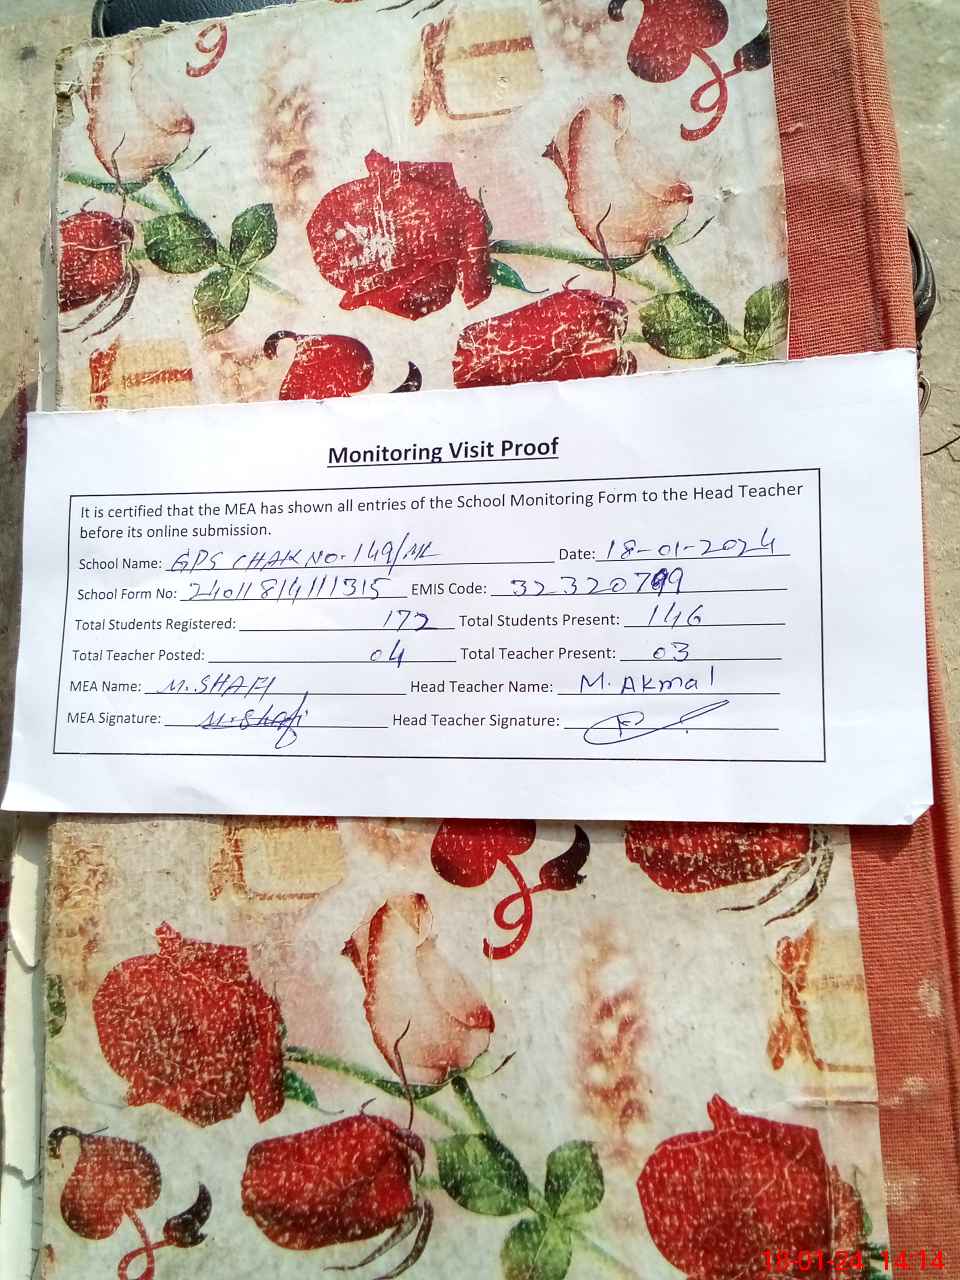 Monitoring Visit Proof
It is certified that the MEA has shown all entries of the School Monitoring Form to the Head Teacher
before its online submission.
School Name: GPS CHAK NO. 149/ML Date: 18-01-2024
School Form No: 24011814111315 EMIS Code: 32320799
Total Students Registered: 172 Total Students Present: 146
Total Teacher Posted: 04 Total Teacher Present: 03
MEA Name: M. SHAFI Head Teacher Name: M. Akmal
MEA Signature: M. Shafi Head Teacher Signature:
18-01-24 14:14